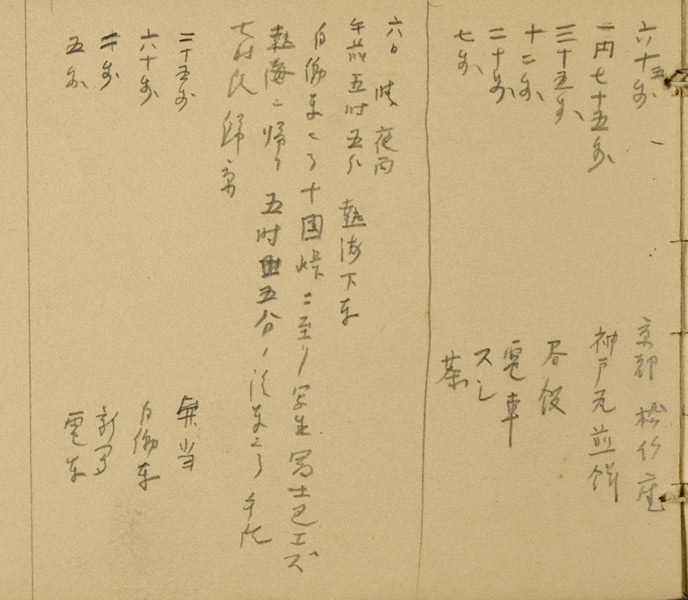 六十五銭 京都 松竹座
一円七十五銭 神戸瓦煎餅
三十五銭 昼飯
十二銭 電車
二十銭 スシ
七銭 茶
六日 晴 夜雨
午前五時五分 熱海下車
自働車ニテ十国峠ニ至リ写生 冨士見エズ
熱海ニ帰リ 五時五分ノ汽車ニテ
七時 帰京
二十五銭 弁当
六十銭 自働車
銭 新聞
五銭 電車